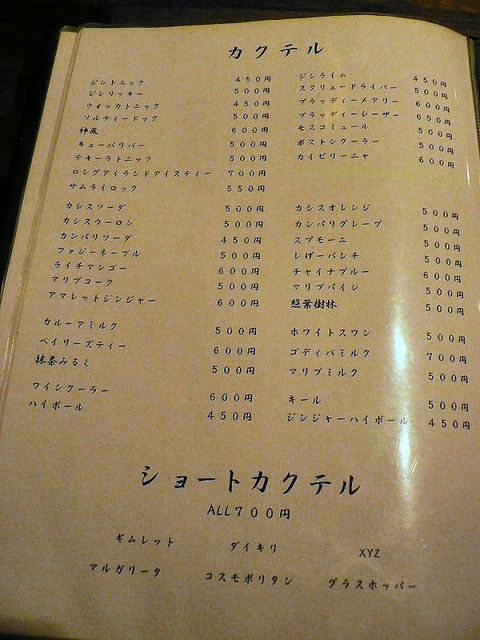 カクテル
ジントニック 450円
ジンリッキー 500円
ウォッカトニック 450円
ソルティードック 500円
神風 600円
キューバリバー 500円
テキーラトニック 500円
ロングアイランドアイスティー 700円
サムライロック 550円
ジンライム 450円
スクリュードライバー 500円
ブラッディーメアリー 600円
ブラッディーシーザー 650円
モスコミュール 500円
ボストンクーラー 500円
カイピリーニャ 600円
カシスソーダ 500円
カシスウーロン 500円
カンパリソーダ 450円
ファジーネーブル 500円
ライチマンゴー 600円
マリブコーク 500円
アマレットジンジャー 600円
カシスオレンジ 500円
カンパリグレープ 500円
スプモーニ 500円
レゲーパンチ 500円
チャイナブルー 600円
マリブパイン 500円
照葉樹林 500円
カルーアミルク 500円
ベイリーズティー 600円
抹茶みるく 500円
ホワイトスワン 500円
ゴディバミルク 700円
マリブミルク 500円
ワインクーラー 600円
ハイボール 450円
キール 500円
ジンジャーハイボール 450円
ショートカクテル
ALL700円
ギムレット ダイキリ XYZ
マルガリータ コスモポリタン グラスホッパー